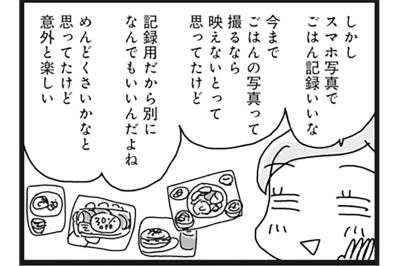 しかし
スマホ写真で
ごはん記録いいな
今まで
ごはんの写真って
撮るなら
映えないとって
思ってたけど
記録用だから別に
なんでもいいんだよね
めんどくさいかなと
思ってたけど
意外と楽しい
30%
off